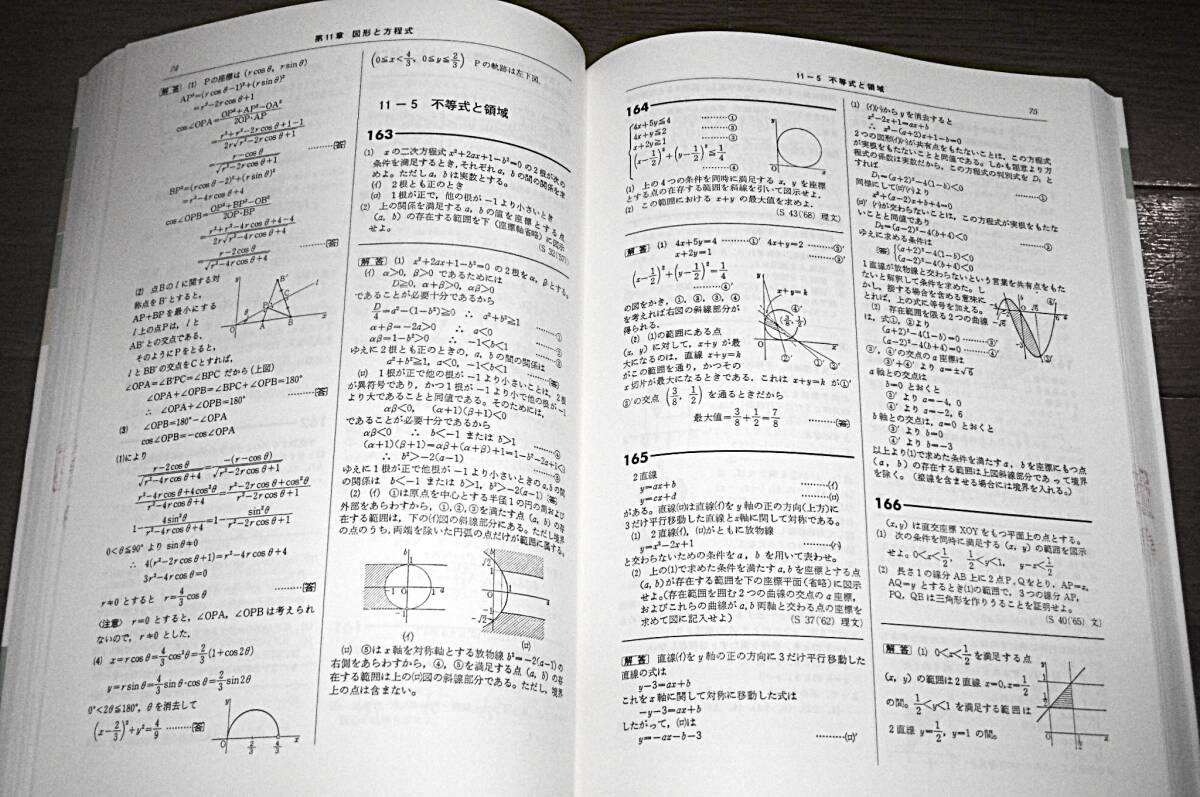 第11章 図形と方程式
74
解答 (1) Pの座標は (r cosθ, r sinθ)
AP²=(r cosθ−1)²+(r sinθ)²
=r²−2r cosθ+1
cos∠OPA=(OP²+AP²−OA²)/(2OP·AP)
=(r²+r²−2r cosθ+1−1)/(2r√(r²−2r cosθ+1))
=(r−cosθ)/√(r²−2r cosθ+1) ………(答)
BP²=(r cosθ−2)²+(r sinθ)²
=r²−4r cosθ+4
cos∠OPB=(OP²+BP²−OB²)/(2OP·BP)
=(r²+r²−4r cosθ+4−4)/(2r√(r²−4r cosθ+4))
=(r−2cosθ)/√(r²−4r cosθ+4) ………(答)
(2) 点Bのlに関する対
称点をB′とすると,
AP+BPを最小にする
l上の点Pは, lと
AB′との交点である.
そのようにPをとると,
lとBB′の交点をCとすれば,
∠OPA=∠B′PC=∠BPC だから (上図)
∠OPA+∠OPB=∠BPC+∠OPB=180°
∴ ∠OPA+∠OPB=180° ………(答)
(3) ∠OPB=180°−∠OPA
cos∠OPB=−cos∠OPA
(1)により
(r−2cosθ)/√(r²−4r cosθ+4)=−(r−cosθ)/√(r²−2r cosθ+1)
(r²−4r cosθ+4cos²θ)/(r²−4r cosθ+4)=(r²−2r cosθ+cos²θ)/(r²−2r cosθ+1)
1−4sin²θ/(r²−4r cosθ+4)=1−sin²θ/(r²−2r cosθ+1)
0<θ≦90° より sinθ≠0
∴ 4(r²−2r cosθ+1)=r²−4r cosθ+4
3r²−4r cosθ=0
r≠0 とすると r=4/3 cosθ ………(答)
〈注意〉 r=0とすると, ∠OPA, ∠OPBは考えられ
ないので, r≠0 とした.
(4) x=r cosθ=4/3 cos²θ=2/3(1+cos2θ)
y=r sinθ=4/3 sinθ·cosθ=2/3 sin2θ
0°<2θ≦180°, θを消去して
(x−2/3)²+y²=4/9 ………(答)
y
0 2/3 4/3 x
(0≦x<4/3, 0≦y≦2/3) Pの軌跡は左下図.
11−5 不等式と領域
163
(1) xの二次方程式 x²+2ax+1−b²=0 の2根が次の
条件を満足するとき, それぞれ a, b の間の関係を求
めよ. ただし a, b は実数とする.
(イ) 2根とも正のとき
(ロ) 1根が正で, 他の根が −1より小さいとき
(2) 上の関係を満足する a, b の値を座標とする点
(a, b) の存在する範囲を下 (座標軸省略) に図示
せよ.
解答 (1) x²+2ax+1−b²=0 の2根をα, βとする.
(イ) α>0, β>0 であるためには
D≧0, α+β>0, αβ>0
であることが必要十分であるから
D/4=a²−(1−b²)≧0 ∴ a²+b²≧1 ………①
α+β=−2a>0 ∴ a<0 ………②
αβ=1−b²>0 ∴ −1<b<1 ………③
ゆえに2根とも正のときの, a, b の間の関係は
a²+b²≧1, a<0, −1<b<1 ………(答)
(ロ) 1根が正で他の根が −1より小さいことは, 2根
が異符号であり, かつ1根が −1より小で他の根が −1
より大であることと同値である. そのためには,
αβ<0, (α+1)(β+1)<0
であることが必要十分であるから
αβ<0 ∴ b<−1 または b>1 ………④
(α+1)(β+1)=αβ+(α+β)+1=1−b²−2a+1<0
∴ b²>−2(a−1) ………⑤
ゆえに1根が正で他根が −1より小さいときのa,bの間
の関係は b<−1 または b>1, b²>−2(a−1) (答)
(2) (イ) ①は原点を中心とする半径1の円の周および
外部をあらわすから, ①,②,③を満たす点 (a, b) の存
在する範囲は, 下の(イ)図の斜線部分にある. ただし境界
の点のうち, 両端を除いた円弧の点だけが範囲に属する.
(イ)
(ロ)
(ロ) ⑤は x軸を対称軸とする放物線 b²=−2(a−1)の
右側をあらわすから, ④, ⑤を満足する点 (a, b) の存
在する範囲は上の(ロ)図の斜線部分である. ただし, 境界
上の点は含まない.
11−5 不等式と領域
75
164
4x+5y≦4 ………①
4x+y≦2 ………②
x+2y≧1 ………③
(x−1/2)²+(y−1/2)²≦1/4 ………④
(1) 上の4つの条件を同時に満足する x, y を座標
とする点の存在する範囲を斜線を引いて図示せよ.
(2) この範囲における x+y の最大値を求めよ.
(S 43('68) 理文)
解答 (1) 4x+5y=4 ………①′ 4x+y=2 ………②′
x+2y=1 ………③′
(x−1/2)²+(y−1/2)²=1/4 ………④′
の図をかき, ①, ②, ③, ④
を考えれば右図の斜線部分が
得られる.
(2) (1)の範囲にある点
(x, y) に対して, x+y が最
大になるのは, 直線 x+y=k
がこの範囲を通り, かつその
x切片が最大になるときである. これは x+y=k が①′
②′の交点 (3/8, 1/2) を通るときだから
最大値=3/8+1/2=7/8 ………(答)
165
2直線
y=ax+b ………(イ)
y=cx+d ………(ロ)
がある. 直線(ロ)は直線(イ)を y軸の正の方向(上方)に
3だけ平行移動した直線とx軸に関して対称である.
(1) 2直線(イ), (ロ)がともに放物線
y=x²−2x+1 ………(ハ)
と交わらないための条件を a, b を用いて表わせ.
(2) 上の(1)で求めた条件を満たす a, b を座標とする点
(a, b)が存在する範囲を下の座標平面(省略)に図示
せよ。(存在範囲を囲む2つの曲線の交点の a座標,
およびこれらの曲線が a, b両軸と交わる点の座標を
求めて図に記入せよ)
(S 37('62) 理文)
解答 直線(イ)を y軸の正の方向に3だけ平行移動した
直線の式は
y−3=ax+b
これを x軸に関して対称に移動した式は
−y−3=ax+b
したがって, (ロ)は
y=−ax−b−3 ………(ロ)′
(1) (イ)(ハ)からyを消去すると
x²−2x+1=ax+b
∴ x²−(a+2)x+1−b=0
2つの図形(イ)(ハ)が共有点をもたないことは, この方程式
が実根をもたないことと同値である. しかも題意より方
程式の係数は実数だから, この方程式の判別式を D₁ と
すれば
D₁=(a+2)²−4(1−b)<0 ………①
同様にして(ロ)′(ハ)より
x²+(a−2)x+b+4=0
(ロ)(ハ)が交わらないことは, この方程式が実根をもたな
いことと同値であり
D₂=(a−2)²−4(b+4)<0 ………②
ゆえに求める条件は
(答) (a+2)²−4(1−b)<0
(a−2)²−4(b+4)<0
1直線が放物線と交わらないという言葉を共有点をもた
ないと解釈して条件を求めた. し
かし, 接する場合を含める意味に
とれば, 上の式に等号を加える.
(2) 存在範囲を限る2つの曲線
は, 式①, ②より
(a+2)²−4(1−b)=0 ………③′
(a−2)²−4(b+4)=0 ………④′
③′, ④′の交点の a座標は
③′+④′より a=±√6
a軸との交点は
b=0 とおくと
③′より a=−4, 0
④′より a=−2, 6
b軸との交点は, a=0 とおくと
③′より b=0
④′より b=−3
以上より(1)で求めた条件を満たす a, b を座標にもつ点
(a, b) の存在する範囲は上図斜線部分であって境界
を除く. (接線を含ませる場合には境界を入れる.)
166
(x, y) は直交座標 XOY をもつ平面上の点とする.
(1) 次の条件を同時に満足する (x, y) の範囲を図示
せよ. 0<x<1/2, 1/2<y<1, y−x<1/2
(2) 長さ1の線分 AB上に2点 P, Qをとり, AP=x,
AQ=y とするとき(1)の範囲で, 3つの線分 AP,
PQ, QBは三角形を作りうることを証明せよ.
(S 40('65) 文)
解答 (1) 0<x<1/2 を満足する点
(x, y) の範囲は2直線 x=0, x=1/2
の間. 1/2<y<1 を満足する範囲は
2直線 y=1/2, y=1 の間.